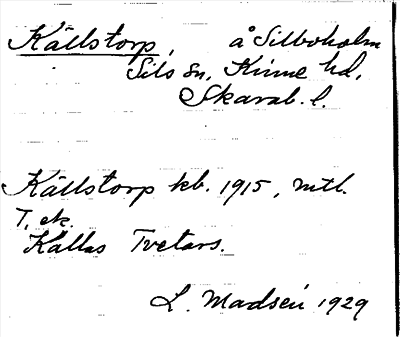 Källstorp, å Silboholm
Sils sn, Kinne hd,
Skarab. l.
Källstorp kb. 1915, mtl.
T. ek.
Kallas Tvetars.
L. Madsén 1929